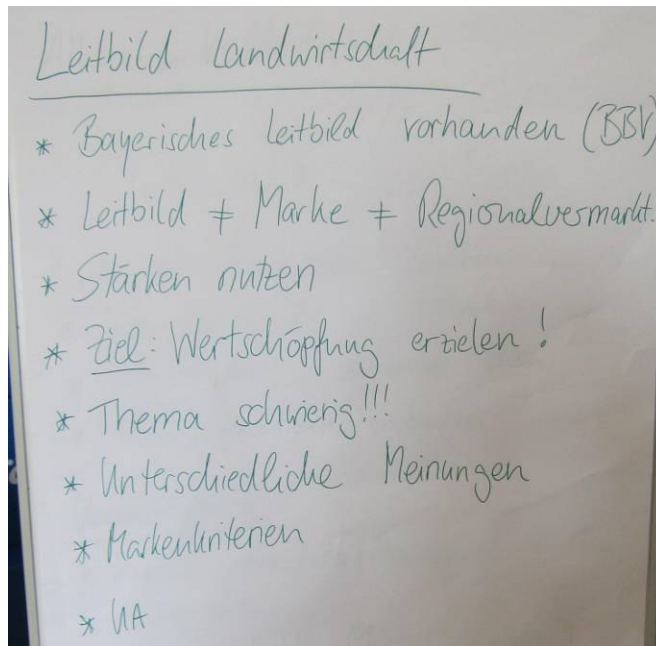 Leitbild Landwirtschaft
* Bayerisches Leitbild vorhanden (BBV)
* Leitbild ≠ Marke ≠ Regionalvermarkt.
* Stärken nutzen
* Ziel: Wertschöpfung erzielen!
* Thema schwierig!!!
* Unterschiedliche Meinungen
* Markenkriterien
* UA